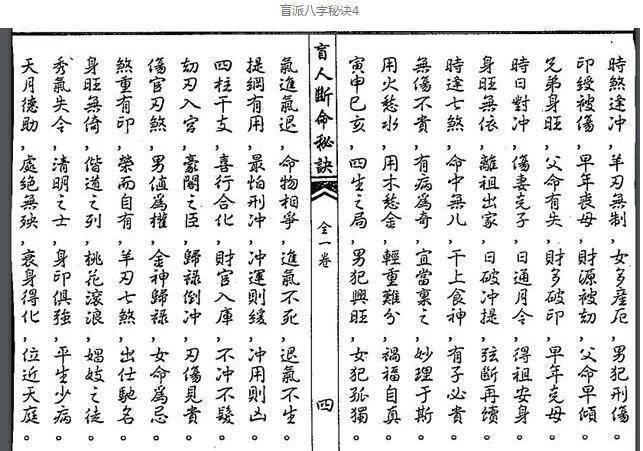 盲派八字秘诀4
時煞逢冲，羊刃無制，女多產厄，男犯刑傷。
印綬被傷，早年喪母，財源被劫，父命早傾。
兄弟身旺，父命有失，財多破印，早年尅母。
時日對冲，傷妻尅子，日通月令，得祖安身。
身旺無依，離祖出家，日破冲提，弦斷再續。
時逢七煞，命中無儿，干上食神，有子必貴。
無傷不貴，有病為奇，宜當裏之，妙理于斯。
用火愁水，用木愁金，輕重難分，禍福自真。
寅申巳亥，四生之局，男犯興旺，女犯孤獨。
盲人斷命秘訣
全一卷
四
氣進氣退，命物相爭，進氣不死，退氣不生。
提綱有用，最怕刑冲，冲運則緩，冲用則凶。
四柱干支，喜行合化，財官入庫，不冲不發。
劫刃入宮，豪閣之臣，歸祿倒冲，刃傷見貴。
傷官刃煞，男值為權，金神歸祿，女命為忌。
煞重有印，榮而自有，羊刃七煞，出仕馳名。
身旺無倚，偕道之列，桃花滾浪，娼妓之徒。
秀氣失令，清明之士，身印俱強，平生少病。
天月德助，處絕無殃，衰身得化，位近天庭。